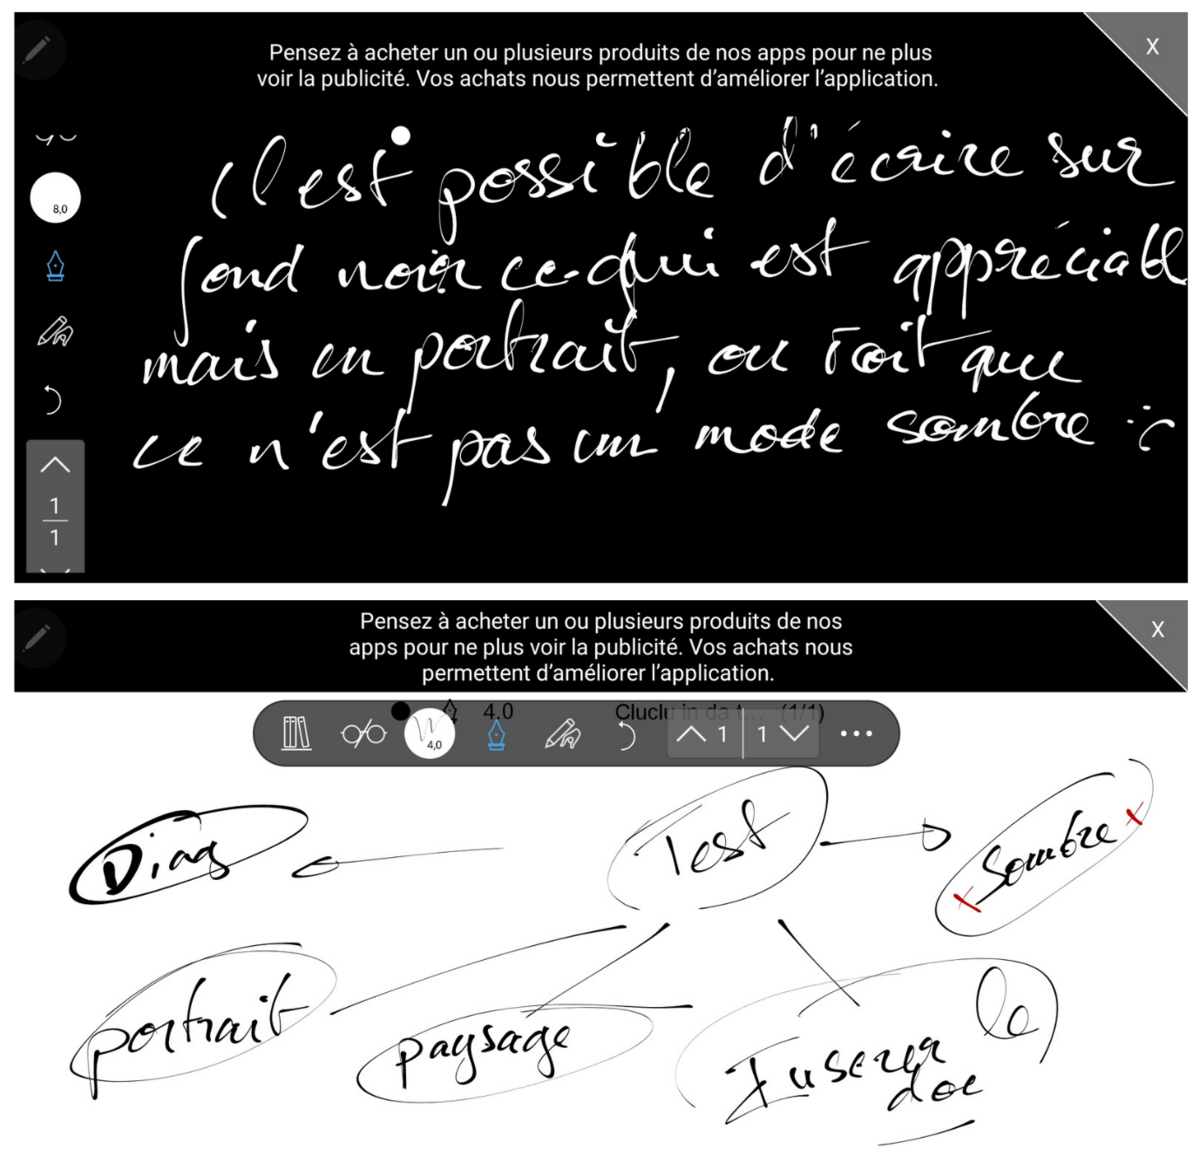 Pensez à acheter un ou plusieurs produits de nos apps pour ne plus
voir la publicité. Vos achats nous permettent d'améliorer l'application.
X
Il est possible d'écrire sur
8,0
fond noir ce qui est appréciabl
mais en portrait, on voit que
ce n'est pas un mode sombre :(
1
1
Pensez à acheter un ou plusieurs produits de nos
apps pour ne plus voir la publicité. Vos achats nous
permettent d'améliorer l'application.
X
4.0 Cluclu in da t... (1/1)
4,0 1 1
Diag
Test
Sombre
portrait
paysage
Inserer le
doc